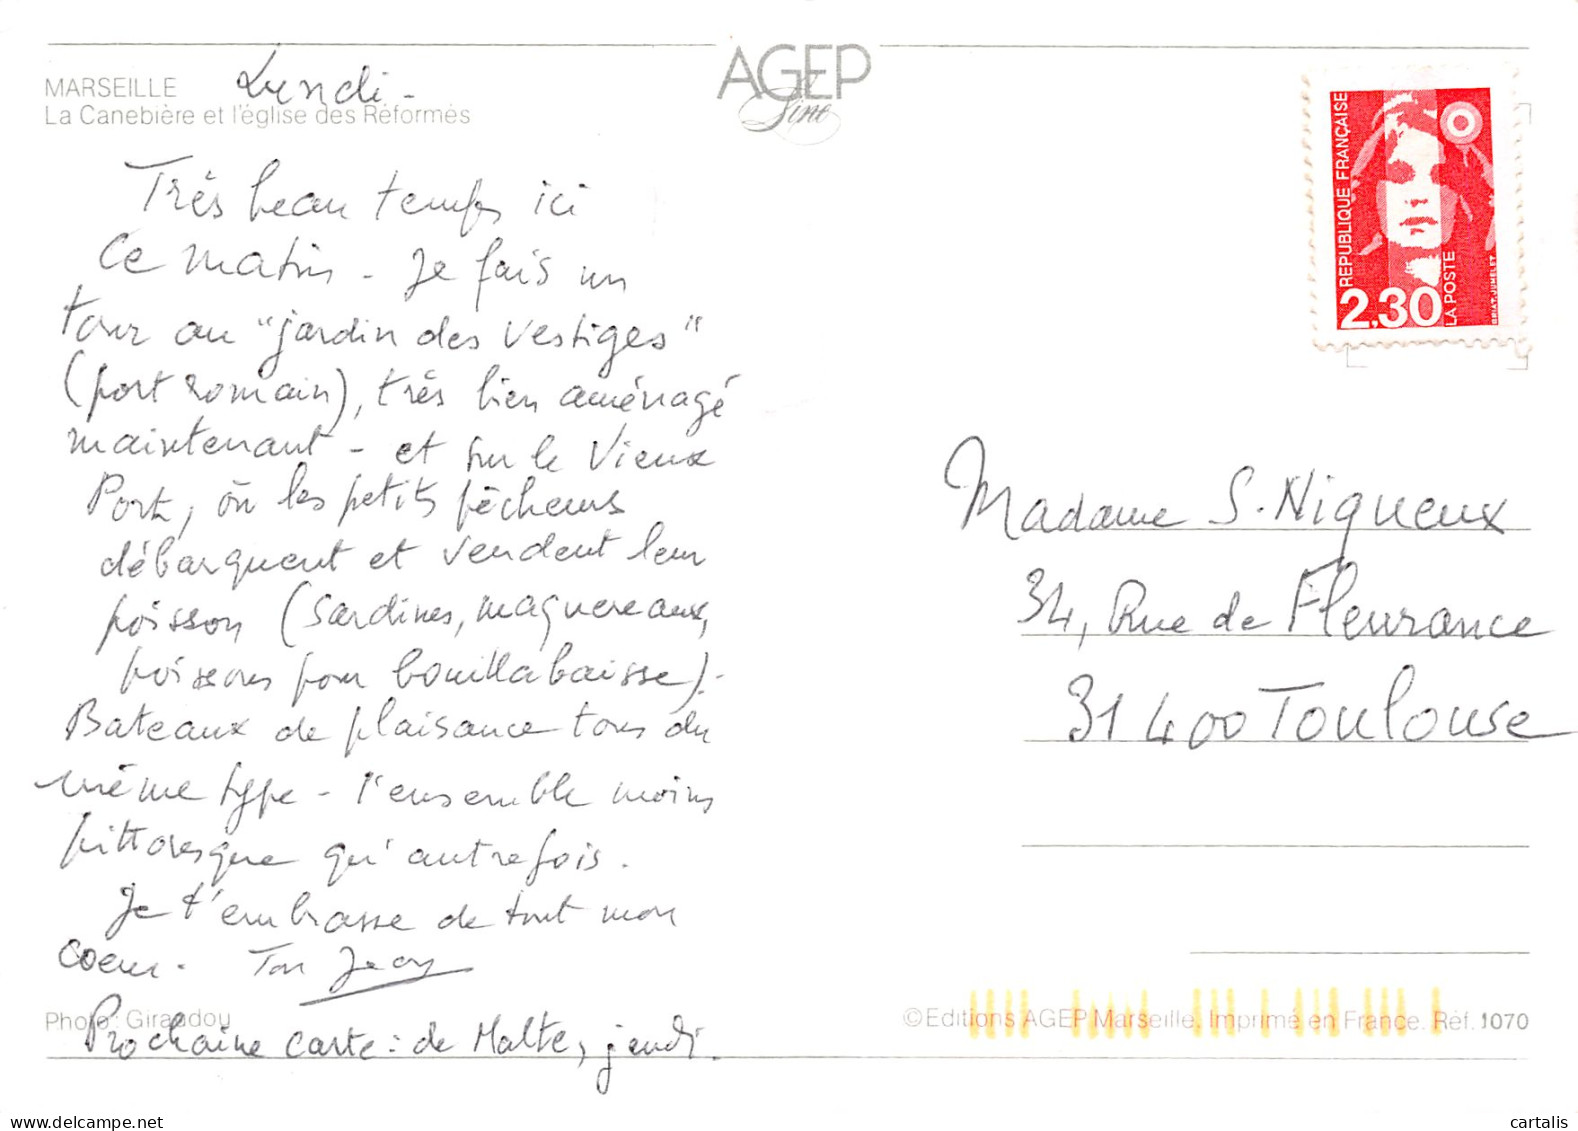 MARSEILLE
La Canebière et l'église des Réformés
Lundi -
AGEP
Line
REPUBLIQUE FRANÇAISE
2,30
LA POSTE
BRIAT. JUMELET
Très beau temps ici
Ce matin - Je fais un
tour au "jardin des Vestiges"
(port romain), très bien aménagé
maintenant - et sur le Vieux
Port, où les petits pêcheurs
débarquent et vendent leur
poisson (sardines, maquereaux,
poissons pour bouillabaisse).-
Bateaux de plaisance tous du
même type - l'ensemble moins
pittoresque qu'autrefois.
Je t'embrasse de tout mon
coeur. Ton Jean
Prochaine carte : de Malte, jeudi.
Madame S. Niqueux
34, Rue de Fleurance
31400 Toulouse
Photo : Giraudou
©Editions AGEP Marseille. Imprimé en France. Réf. 1070
delcampe.net
cartalis